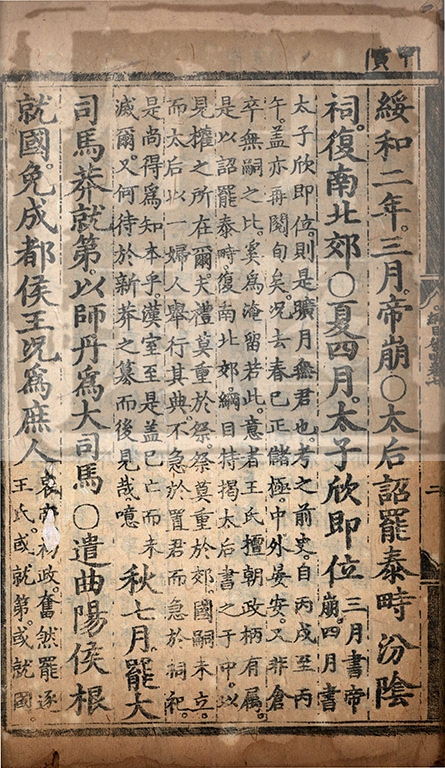 甲寅
綏和二年。三月。帝崩○太后詔罷泰畤汾陰
祠。復南北郊○夏四月。太子欣即位
三月書帝
崩。四月書
太子欣即位。則是曠月無君也。考之前史。自丙戌至丙
午。蓋亦再閱旬矣。况去春已正儲極。中外晏安。又非倉
卒無嗣之比。奚爲淹留若此。意者王氏擅朝政柄有屬。
是以詔罷泰畤。復南北郊。綱目特揭太后書之于中。以
見權之所在爾。夫禮莫重於祭。祭莫重於郊。國嗣未立。
而太后以一婦人舉行其典。不急於置君而急於祠祀。
是尚得爲知本乎。漢室至是蓋已亡而未
滅爾。又何待於新莽之篡而後見哉。噫
秋七月。罷大
司馬莽就第。以師丹爲大司馬○遣曲陽侯根
就國。免成都侯王况爲庶人
哀初政。奮然罷逐
王氏。或就第。或就國。
二